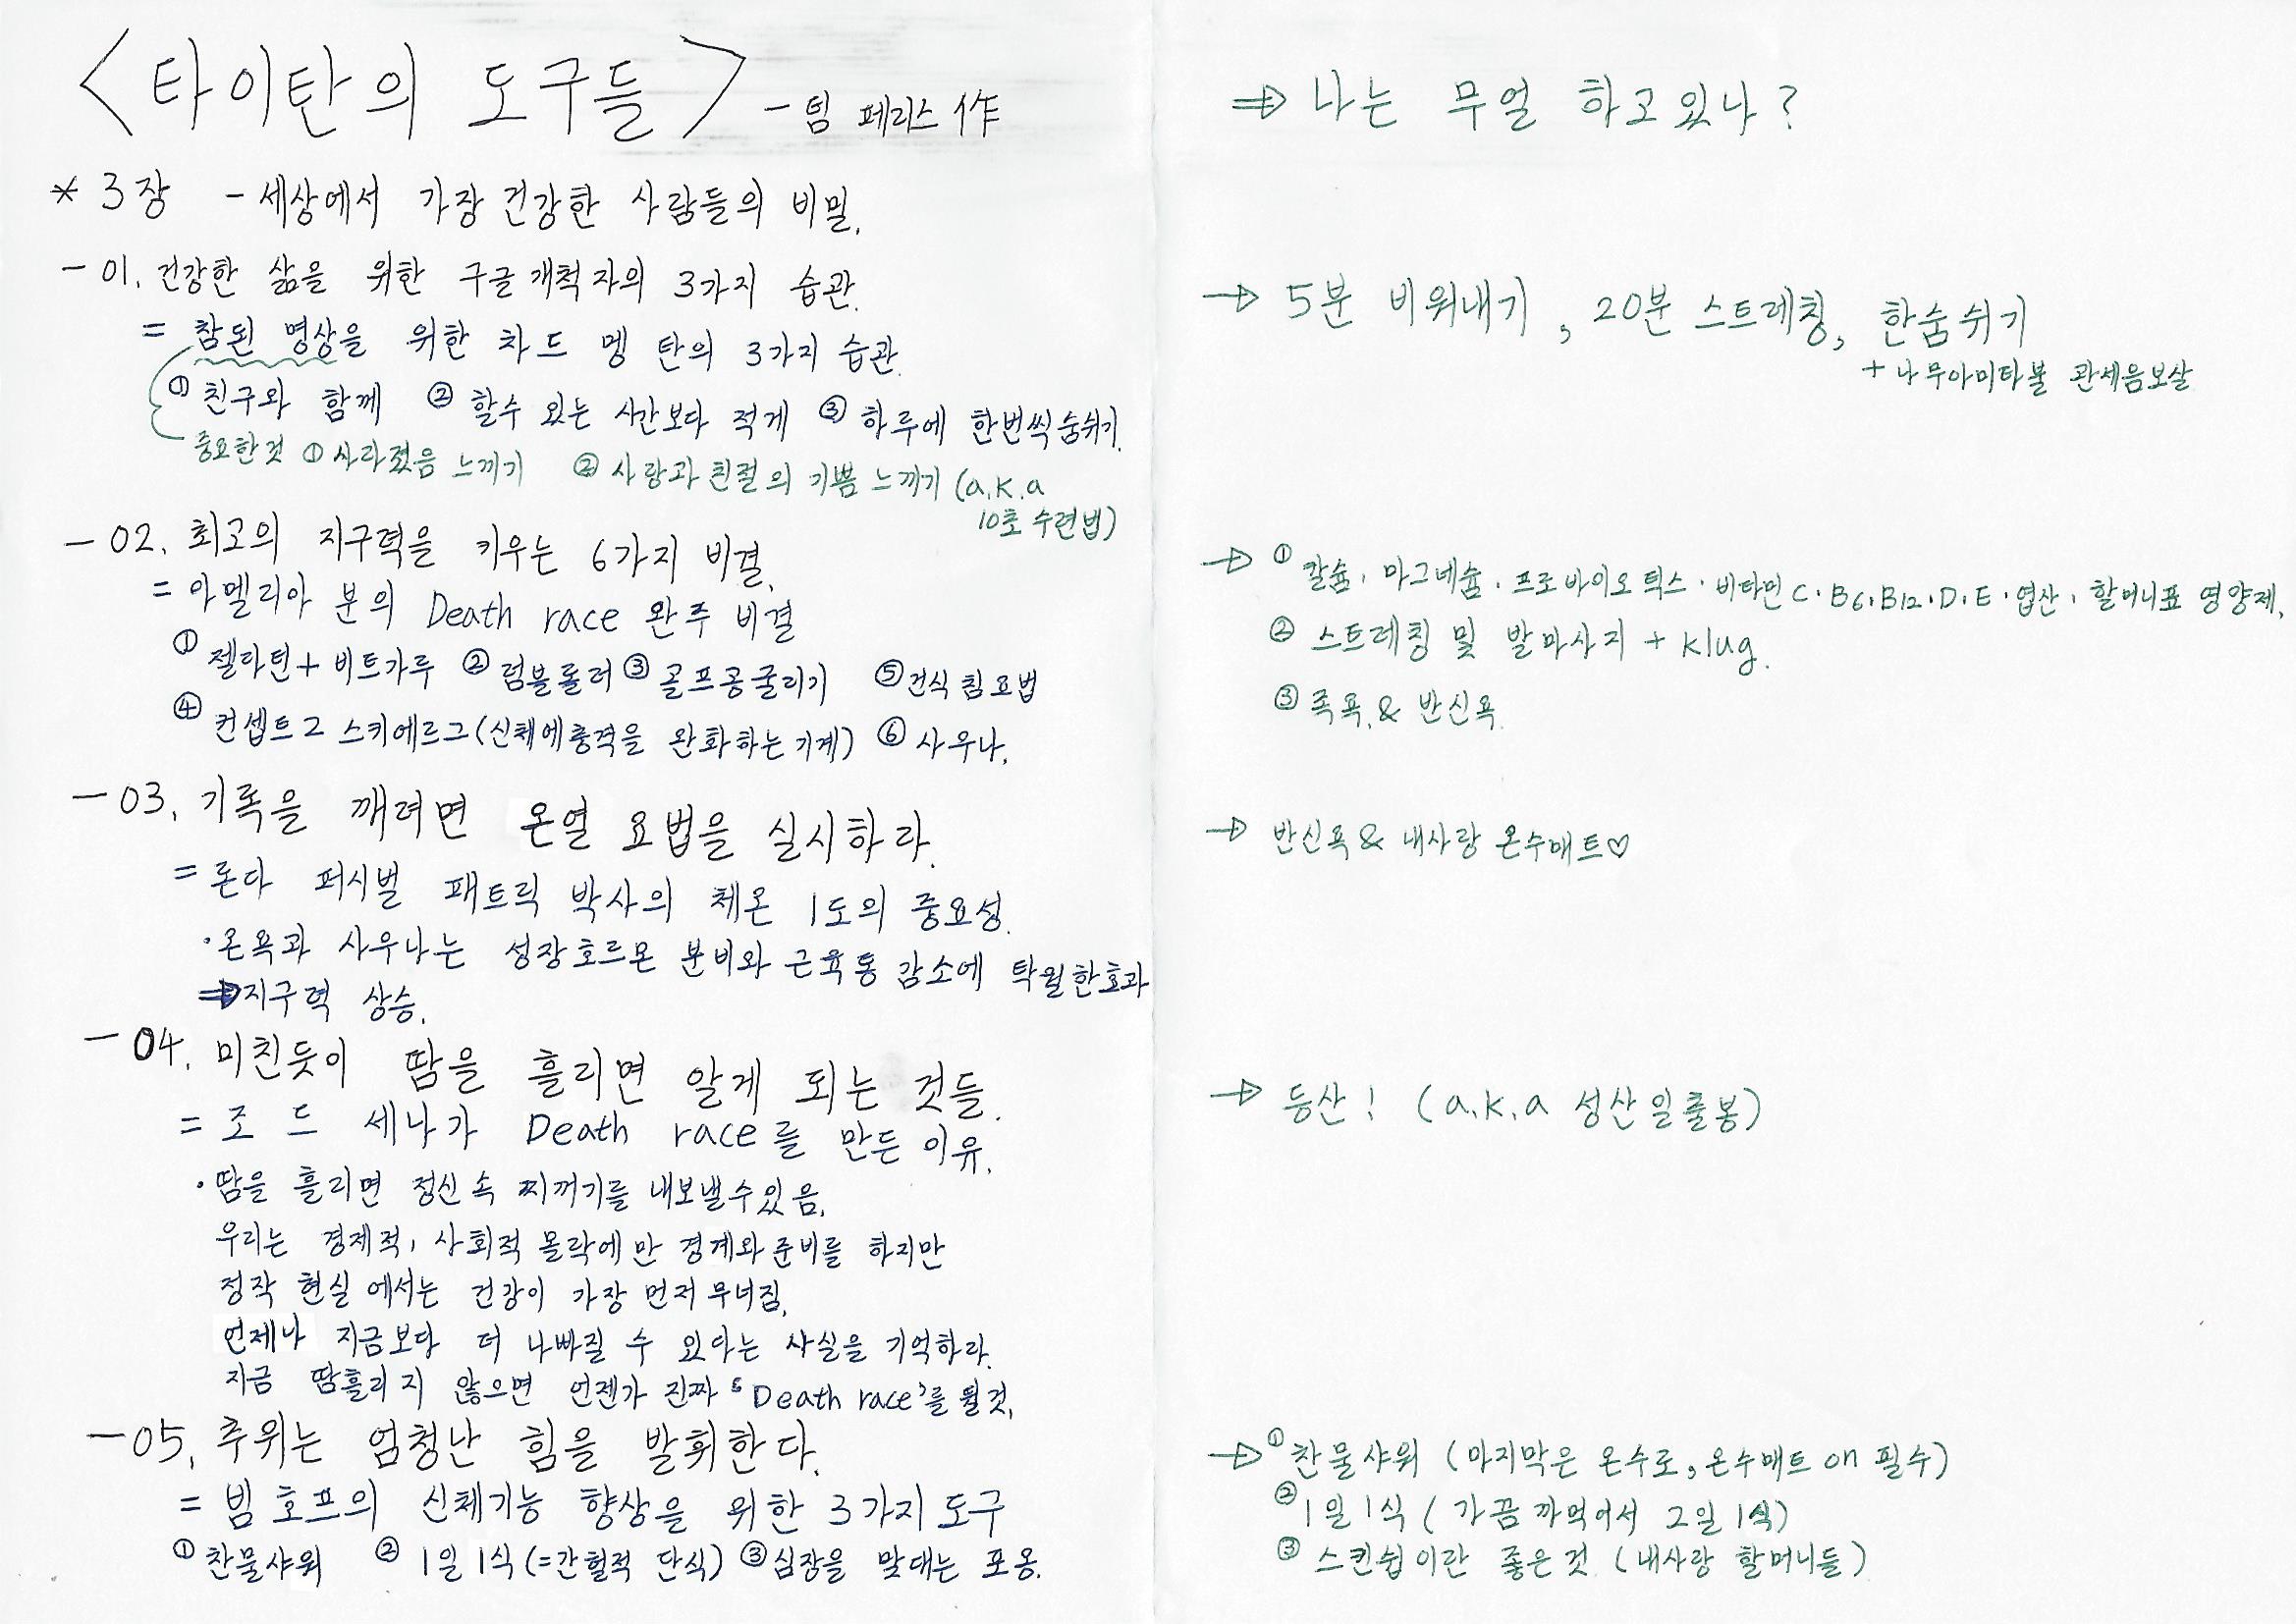 <타이탄의 도구들> - 팀 페리스 作
* 3장 - 세상에서 가장 건강한 사람들의 비밀.
- 01. 건강한 삶을 위한 구글 개척자의 3가지 습관.
= 참된 명상을 위한 차드 멩 탄의 3가지 습관.
① 친구와 함께 ② 할수 있는 시간보다 적게 ③ 하루에 한번씩 숨쉬기.
중요한것 ① 사라졌음 느끼기 ② 사랑과 친절의 기쁨 느끼기 (a.k.a
10초 수련법)
- 02. 최고의 지구력을 키우는 6가지 비결.
= 아멜리아 분의 Death race 완주 비결
① 젤라틴 + 비트가루 ② 럼블롤러 ③ 골프공굴리기 ⑤ 건식 침요법
④ 컨셉트2 스키에르그(신체에충격을 완화하는기계) ⑥ 사우나.
- 03. 기록을 깨려면 온열 요법을 실시하라.
= 론다 퍼시벌 패트릭 박사의 체온 1도의 중요성.
· 온욕과 사우나는 성장호르몬 분비와 근육통 감소에 탁월한효과
⇒ 지구력 상승.
- 04. 미친듯이 땀을 흘리면 알게 되는 것들.
= 조 드 세나가 Death race를 만든 이유.
· 땀을 흘리면 정신속 찌꺼기를 내보낼수있음.
우리는 경제적, 사회적 몰락에만 경계와 준비를 하지만
정작 현실에서는 건강이 가장 먼저 무너짐.
언제나 지금보다 더 나빠질 수 있다는 사실을 기억하라.
지금 땀흘리지 않으면 언젠가 진짜 'Death race'를 뛸것.
- 05. 추위는 엄청난 힘을 발휘한다.
= 빔 호프의 신체기능 향상을 위한 3가지 도구
① 찬물샤워 ② 1일 1식(=간헐적 단식) ③ 심장을 맞대는 포옹.
⇒ 나는 무얼 하고있나?
→ 5분 비워내기, 20분 스트레칭, 한숨쉬기
+ 나무아미타불 관세음보살
→ ① 칼슘 · 마그네슘 · 프로바이오틱스 · 비타민 C · B6 · B12 · D · E · 엽산 · 할머니표 영양제.
② 스트레칭 및 발마사지 + klug.
③ 족욕 & 반신욕
→ 반신욕 & 내사랑 온수매트♡
→ 등산! (a.k.a 성산일출봉)
→ ① 찬물샤워 (마지막은 온수로, 온수매트 on 필수)
② 1일 1식 (가끔 까먹어서 2일 1식)
③ 스킨쉽이란 좋은것 (내사랑 할머니들)